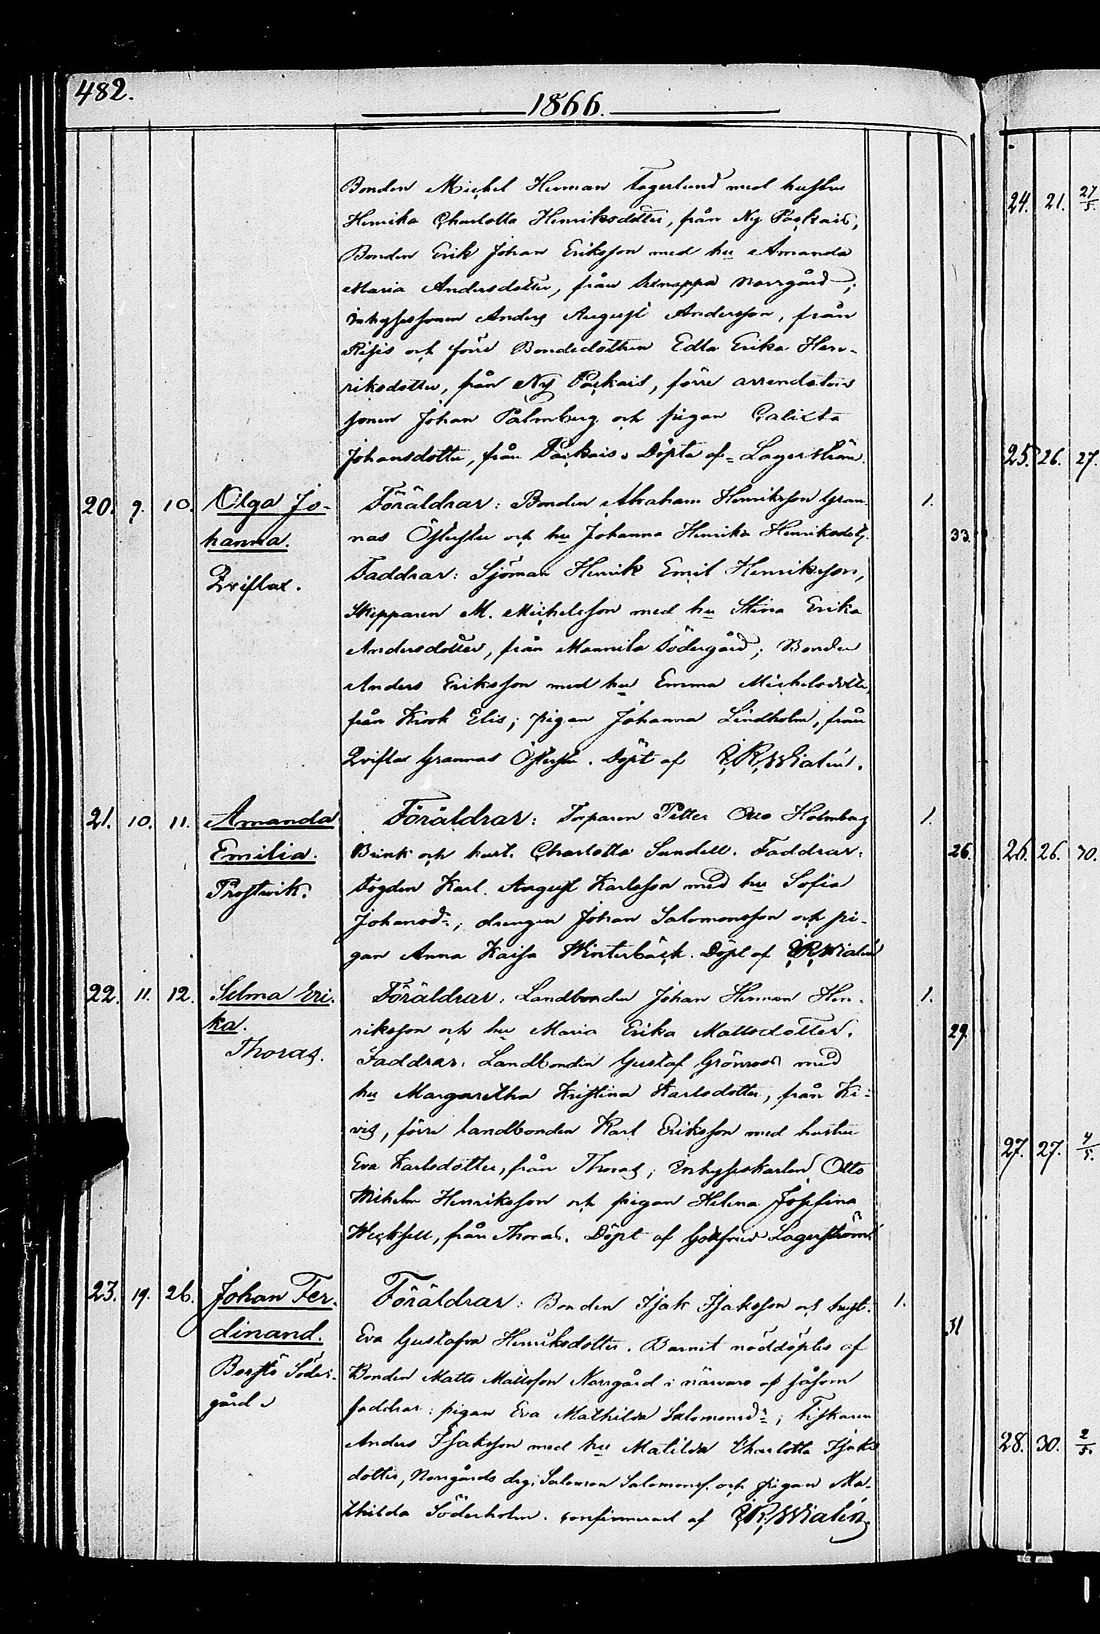 482.
1866.
Bonden Michel Herman Fagerlund med hustru
Henrika Charlotta Henriksdotter, från Ny Päckais,
Bonden Erik Johan Eriksson med hu Amanda
Maria Andersdotter, från Norrgård;
inhysessonen Anders August Andersson, från
Risis och förre Bondedottren Edla Erika Hen-
riksdotter, från Ny Päckais, förre arrendators
sonen Johan Palmberg och pigan Calixta
Johansdotter, från Päckais. Döpte af Lagerström.
20. 9. 10. Olga Jo- Föräldrar: Bonden Abraham Henriksson Gran- 1.
hanna. nas Östester och hu Johanna Henrika Henriksdotr. 33.
Qviflax. Faddrar: Sjöman Henrik Emil Henriksson,
Skepparen M. Michelsson med hu Stina Erika
Andersdotter, från Mannila Södergård; Bonden
Anders Eriksson med hu Emma Michelsdotter,
från Krok Elis; pigan Johanna Lindholm, från
Qviflax Grannas Östester. Döpt af Walin.
21. 10. 11. Amanda Föräldrar: Torparen Petter Otto Holmberg 1.
Emilia. Brink och hust. Charlotta Sundell. Faddrar: 26.
Prostvik. Fogden Karl August Karlsson med hu Sofia
Johansdr; drengen Johan Salomonsson och pi-
gan Anna Kaisa Winterbäck. Döpt af Walin
22. 11. 12. Selma Eri- Föräldrar: Landbonden Johan Herman Hen- 1.
ka. riksson och hu Maria Erika Mattsdotter. 29.
Thoras. Faddrar: Landbonden Gustaf Grönroos med
hu Margaretha Kristina Karlsdotter, från Ki-
vis, förre landbonden Karl Eriksson med hustru
Eva Karlsdotter, från Thoras; inhyseskarlen Otto
Wilhelm Henriksson och pigan Helena Josefina
Wecksell, från Thoras. Döpt af Gottfrid Lagerström
23. 19. 26. Johan Fer- Föräldrar: Bonden Isak Isaksson och hust. 1.
dinand. Eva Gustafva Henriksdotter. Barnet nöddöptes af 31
Borstö Söder- Bonden Matts Mattsson Norrgård i närvaro af såsom
gård. faddrar: pigan Eva Mathilda Salomonsdr; Fiskaren
Anders Isaksson med hu Matilda Charlotta Isaks-
dotter, Norrgårds drg. Salomon Salomonss. och pigan Ma-
thilda Söderholm. confirmerad af Walin
24. 21. 27/5.
25. 26. 27.
26. 26. 30.
27. 27. 4/5.
28. 30. 2/5.